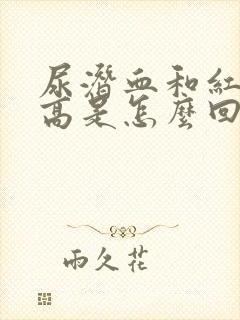 尿潛血和紅
高是怎麼回
雨久花